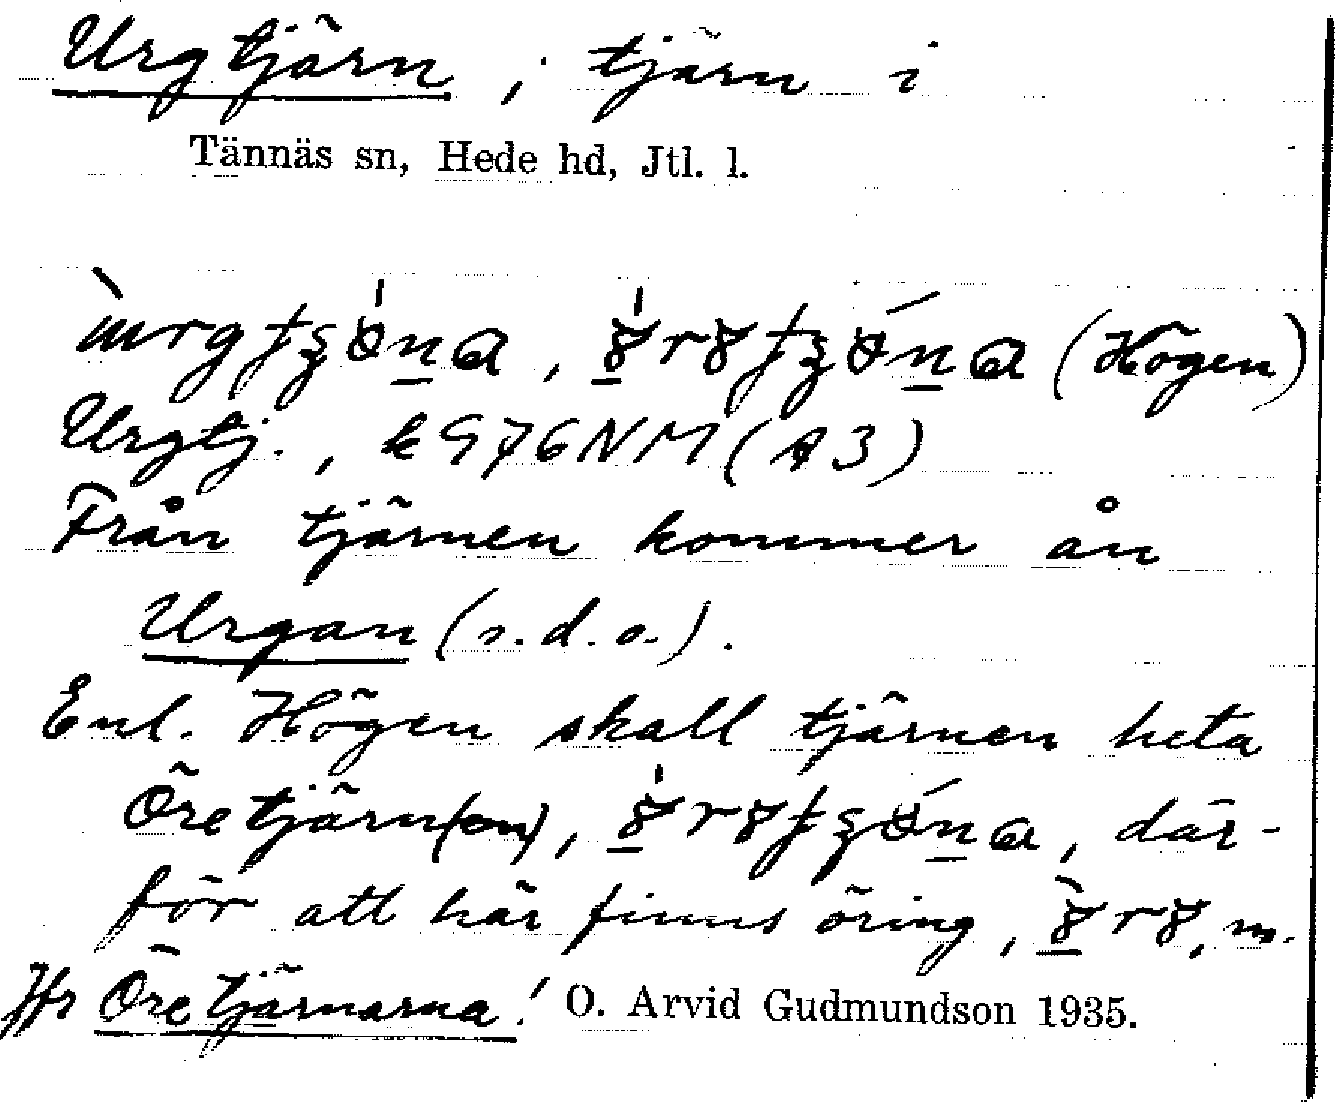 Urgtjärn, tjärn i
Tännäs sn, Hede hd, Jtl. l.
(Högen)
Urgtj., k 976NM (A3)
Från tjärnen kommer ån
Urgan (s.d.o.).
Enl. Högen skall tjärnen heta
Öretjärn(en), där-
för att här finns öring, m.
Jfr Öretjärnarna! O. Arvid Gudmundson 1935.